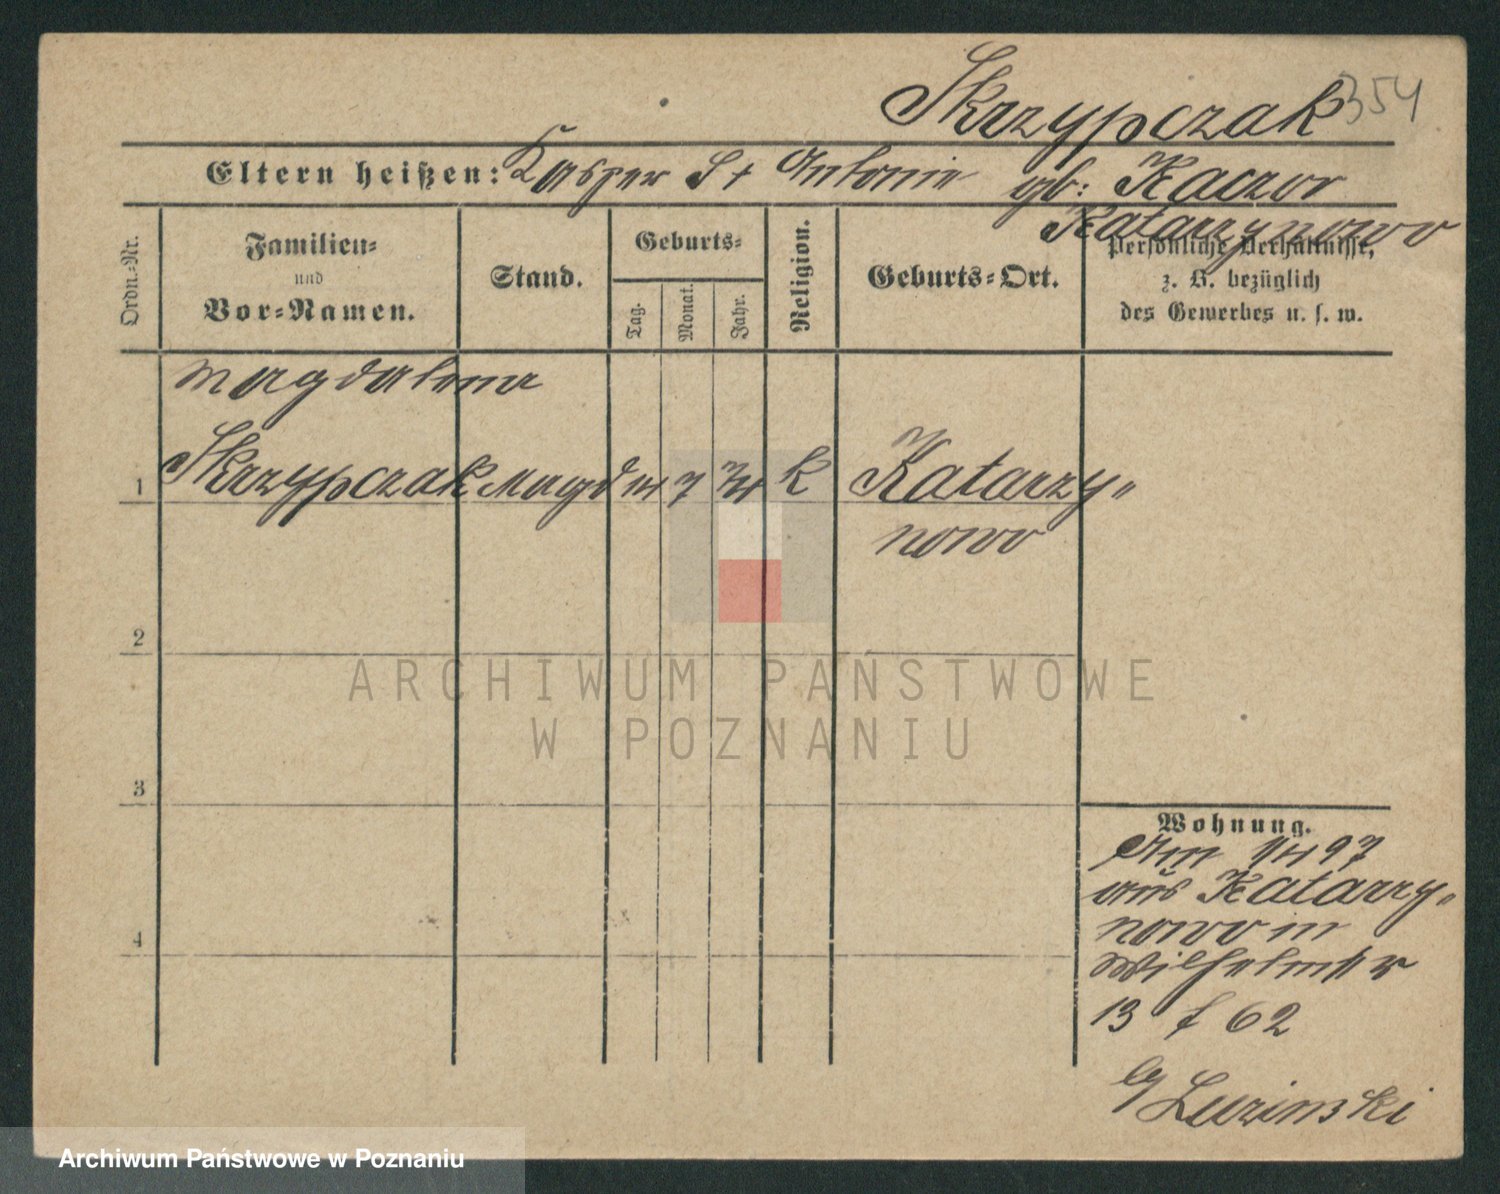 Skrzypczak 354
Eltern heißen: Kasper St Antonie gb: Kaczor
Katarzynowo
Ordn.-Nr.
Familien-
und
Vor-Namen.
Stand.
Geburts-
Tag.
Monat.
Jahr.
Religion.
Geburts-Ort.
Persönliche Verhältnisse,
z. B. bezüglich
des Gewerbes u. s. w.
Magdalena
1 Skrzypczak Magd 7 k Katarzy-
nowo
2
3
4
Wohnung.
97
aus Katarzy-
nowo in
13 f 62
ARCHIWUM PAŃSTWOWE
W POZNANIU
Archiwum Państwowe w Poznaniu